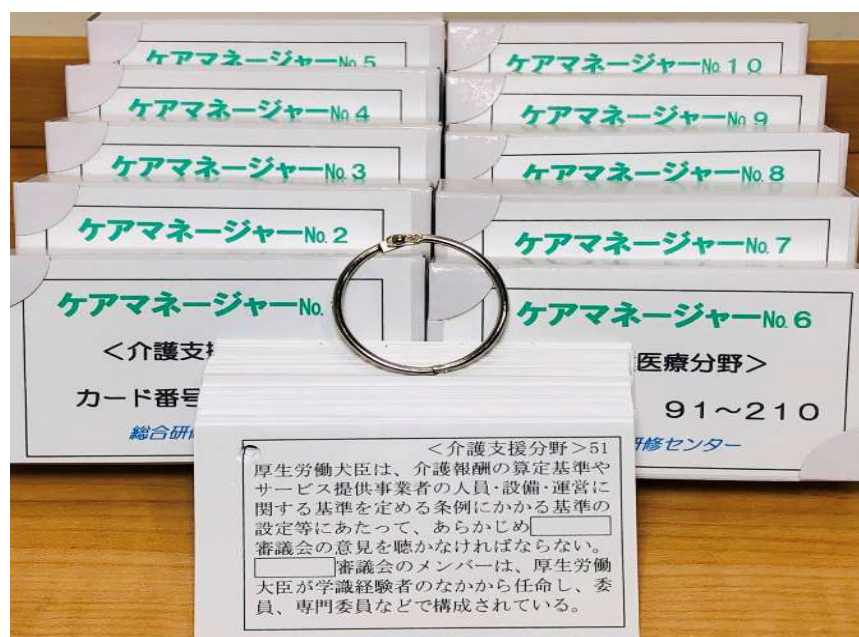 ケアマネージャーNo.5
ケアマネージャーNo.10
ケアマネージャーNo.4
ケアマネージャーNo.9
ケアマネージャーNo.3
ケアマネージャーNo.8
ケアマネージャーNo.2
ケアマネージャーNo.7
ケアマネージャーNo.
<介護支
カード番号
総合研
ケアマネージャーNo.6
医療分野>
91~210
研修センター
<介護支援分野>51
厚生労働大臣は、介護報酬の算定基準や
サービス提供事業者の人員・設備・運営に
関する基準を定める条例にかかる基準の
設定等にあたって、あらかじめ
審議会の意見を聴かなければならない。
審議会のメンバーは、厚生労働
大臣が学識経験者のなかから任命し、委
員、専門委員などで構成されている。